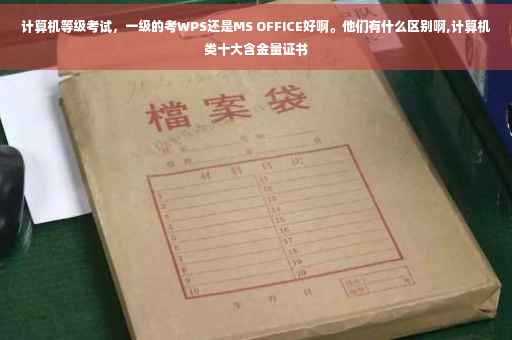 计算机等级考试，一级的考WPS还是MS OFFICE好啊。他们有什么区别啊,计算机
类十大含金量证书
檔案袋
材料目次
1 11
2 12
3 13
4 14
5 15
6 16
7 17
8 18
9 19
10 20
年 月 日